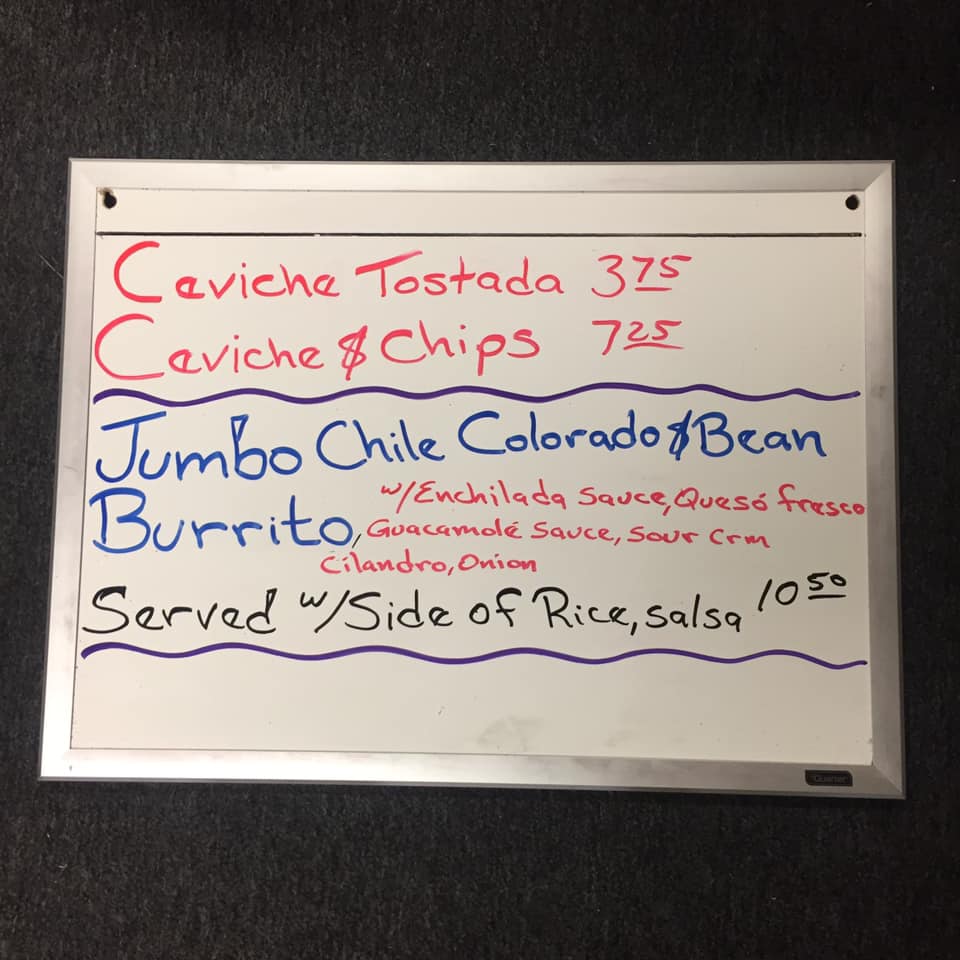 Ceviche Tostada 3 75
Ceviche & Chips 7 25
Jumbo Chile Colorado & Bean
Burrito, w/Enchilada Sauce, Quesó fresco
Guacamolé Sauce, Sour Crm
Cilandro, Onion
Served w/Side of Rice, salsa 10 50
Quartet